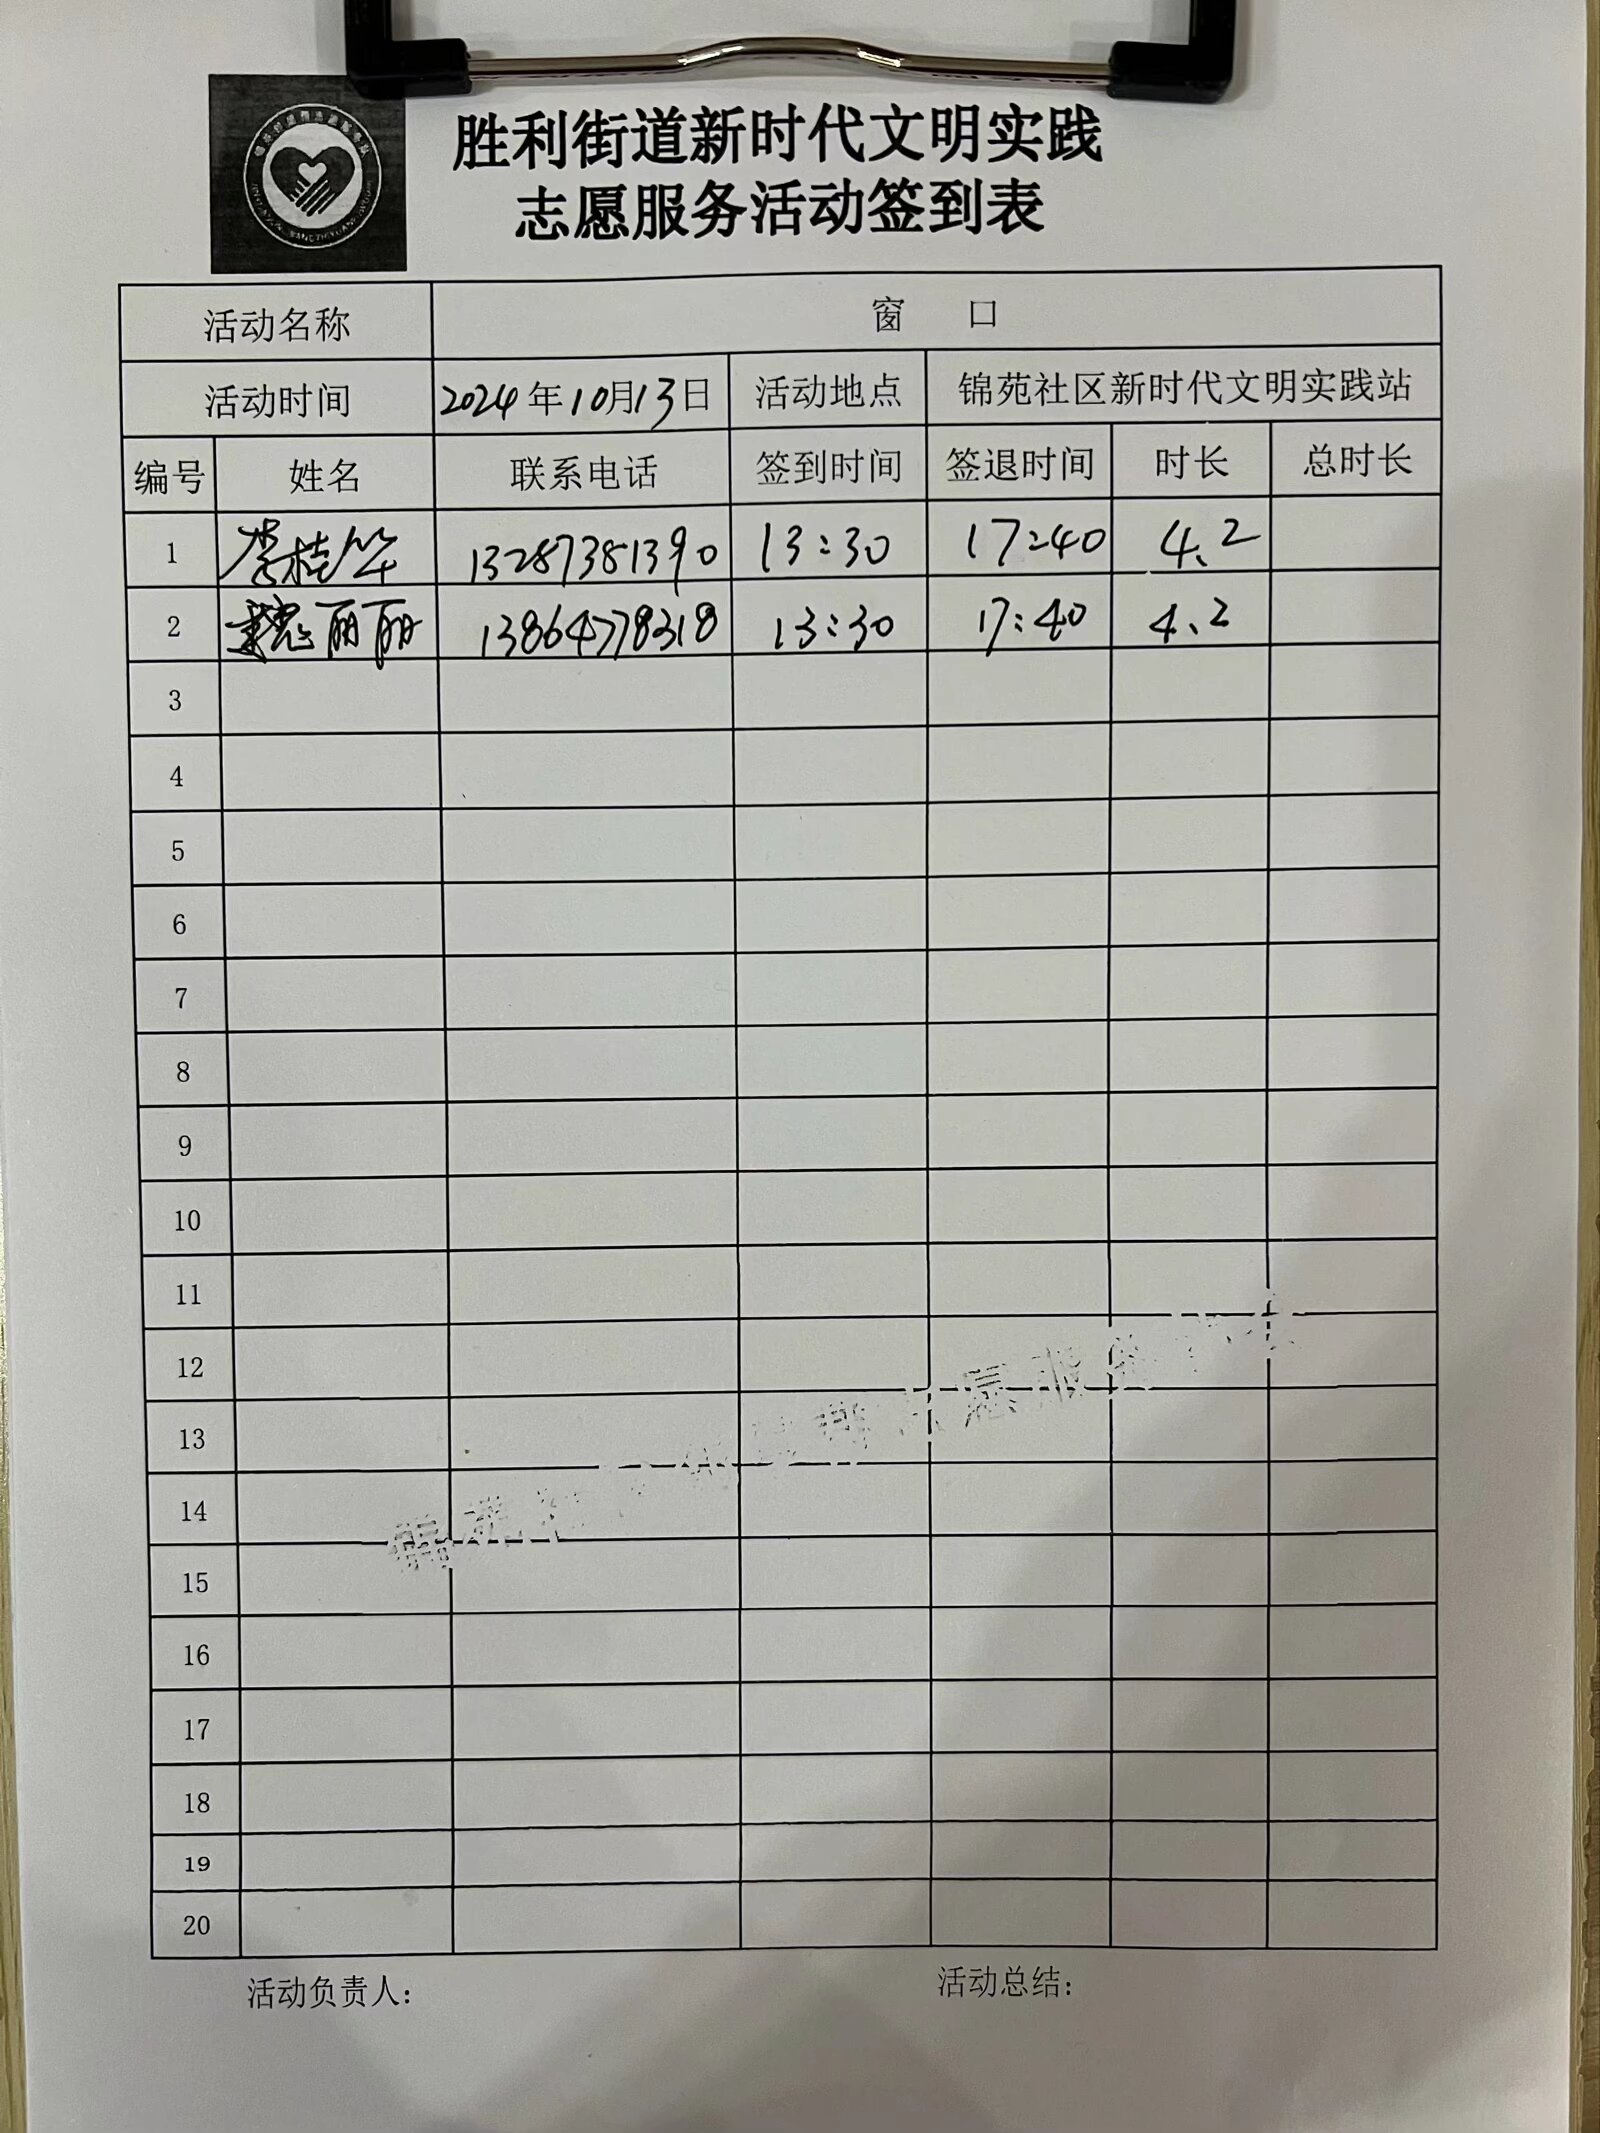 胜利街道新时代文明实践
志愿服务活动签到表
活动名称 窗 口
活动时间 2024年10月13日 活动地点 锦苑社区新时代文明实践站
编号 姓名 联系电话 签到时间 签退时间 时长 总时长
1 李桂华 13287381390 13:30 17:40 4.2
2 魏丽丽 13864778318 13:30 17:40 4.2
3
4
5
6
7
8
9
10
11
12
13
14
15
16
17
18
19
20
活动负责人： 活动总结：